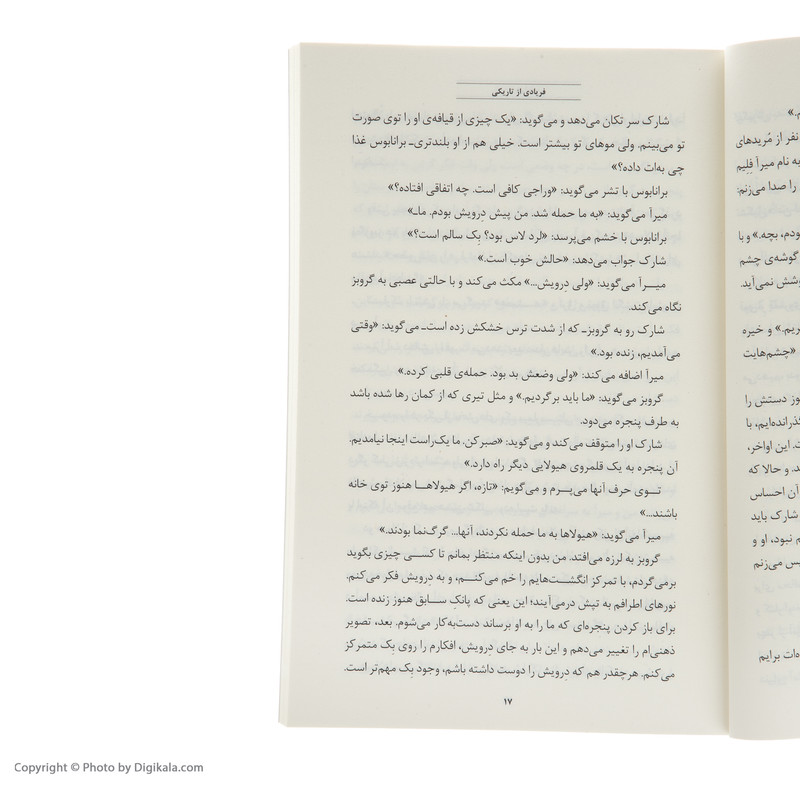 فریادی از تاریکی
شارک سر تکان می‌دهد و می‌گوید: «یک چیزی از قیافه‌ی او را توی صورت
تو می‌بینم. ولی موهای تو بیشتر است. خیلی هم از او بلندتری‌ـ برانابوس غذا
چی به‌ات داده؟»
برانابوس با تشر می‌گوید: «وراجی کافی است. چه اتفاقی افتاده؟»
میرآ می‌گوید: «به ما حمله شد. من پیش دِرویش بودم. ماـ»
برانابوس با خشم می‌پرسد: «لرد لاس بود؟ بِک سالم است؟»
شارک جواب می‌دهد: «حالش خوب است.»
میــرآ می‌گوید: «ولی دِرویش...» مکث می‌کند و با حالتی عصبی به گروبز
نگاه می‌کند.
شارک رو به گروبزـ که از شدت ترس خشکش زده است‌ـ می‌گوید: «وقتی
می‌آمدیم، زنده بود.»
میرآ اضافه می‌کند: «ولی وضعش بد بود. حمله‌ی قلبی کرده.»
گروبز می‌گوید: «ما باید برگردیم.» و مثل تیری که از کمان رها شده باشد
به طرف پنجره می‌دود.
شارک او را متوقف می‌کند و می‌گوید: «صبر کن. ما یک‌راست اینجا نیامدیم.
آن پنجره به یک قلمروی هیولایی دیگر راه دارد.»
تــوی حرف آنها می‌پــرم و می‌گویم: «تازه، اگر هیولاهــا هنوز توی خانه
باشند...»
میرآ می‌گوید: «هیولاها به ما حمله نکردند، آنها... گرگ‌نما بودند.»
گروبز به لرزه می‌افتد. من بدون اینکه منتظر بمانم تا کســی چیزی بگوید
برمی‌گردم، با تمرکز انگشــت‌هایم را خم می‌کنــم، و به دِرویش فکر می‌کنم.
نورهای اطرافم به تپش درمی‌آیند؛ این یعنی که پانکِ ســابق هنوز زنده است.
برای باز کردن پنجره‌ای که ما را به او برساند دست‌به‌کار می‌شوم. بعد، تصویر
ذهنی‌ام را تغییر می‌دهم و این بار به جای دِرویش، افکارم را روی بِک متمرکز
می‌کنم. هرچقدر هم که دِرویش را دوست داشته باشم، وجود بِک مهم‌تر است.
۱۷
نفر از مُریدهای
به نام میرآ فِلِیم
را صدا می‌زنم:
بودم، بچه.» و با
گوشه‌ی چشم
نمی‌آید.
و خیره
«چشم‌هایت
دستش را
با
این اواخر،
و حالا که
آن احساس
شارک باید
نبود، او و
می‌زنم
برایم
Copyright © Photo by Digikala.com